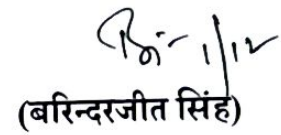 1/12
(बरिन्दरजीत सिंह)